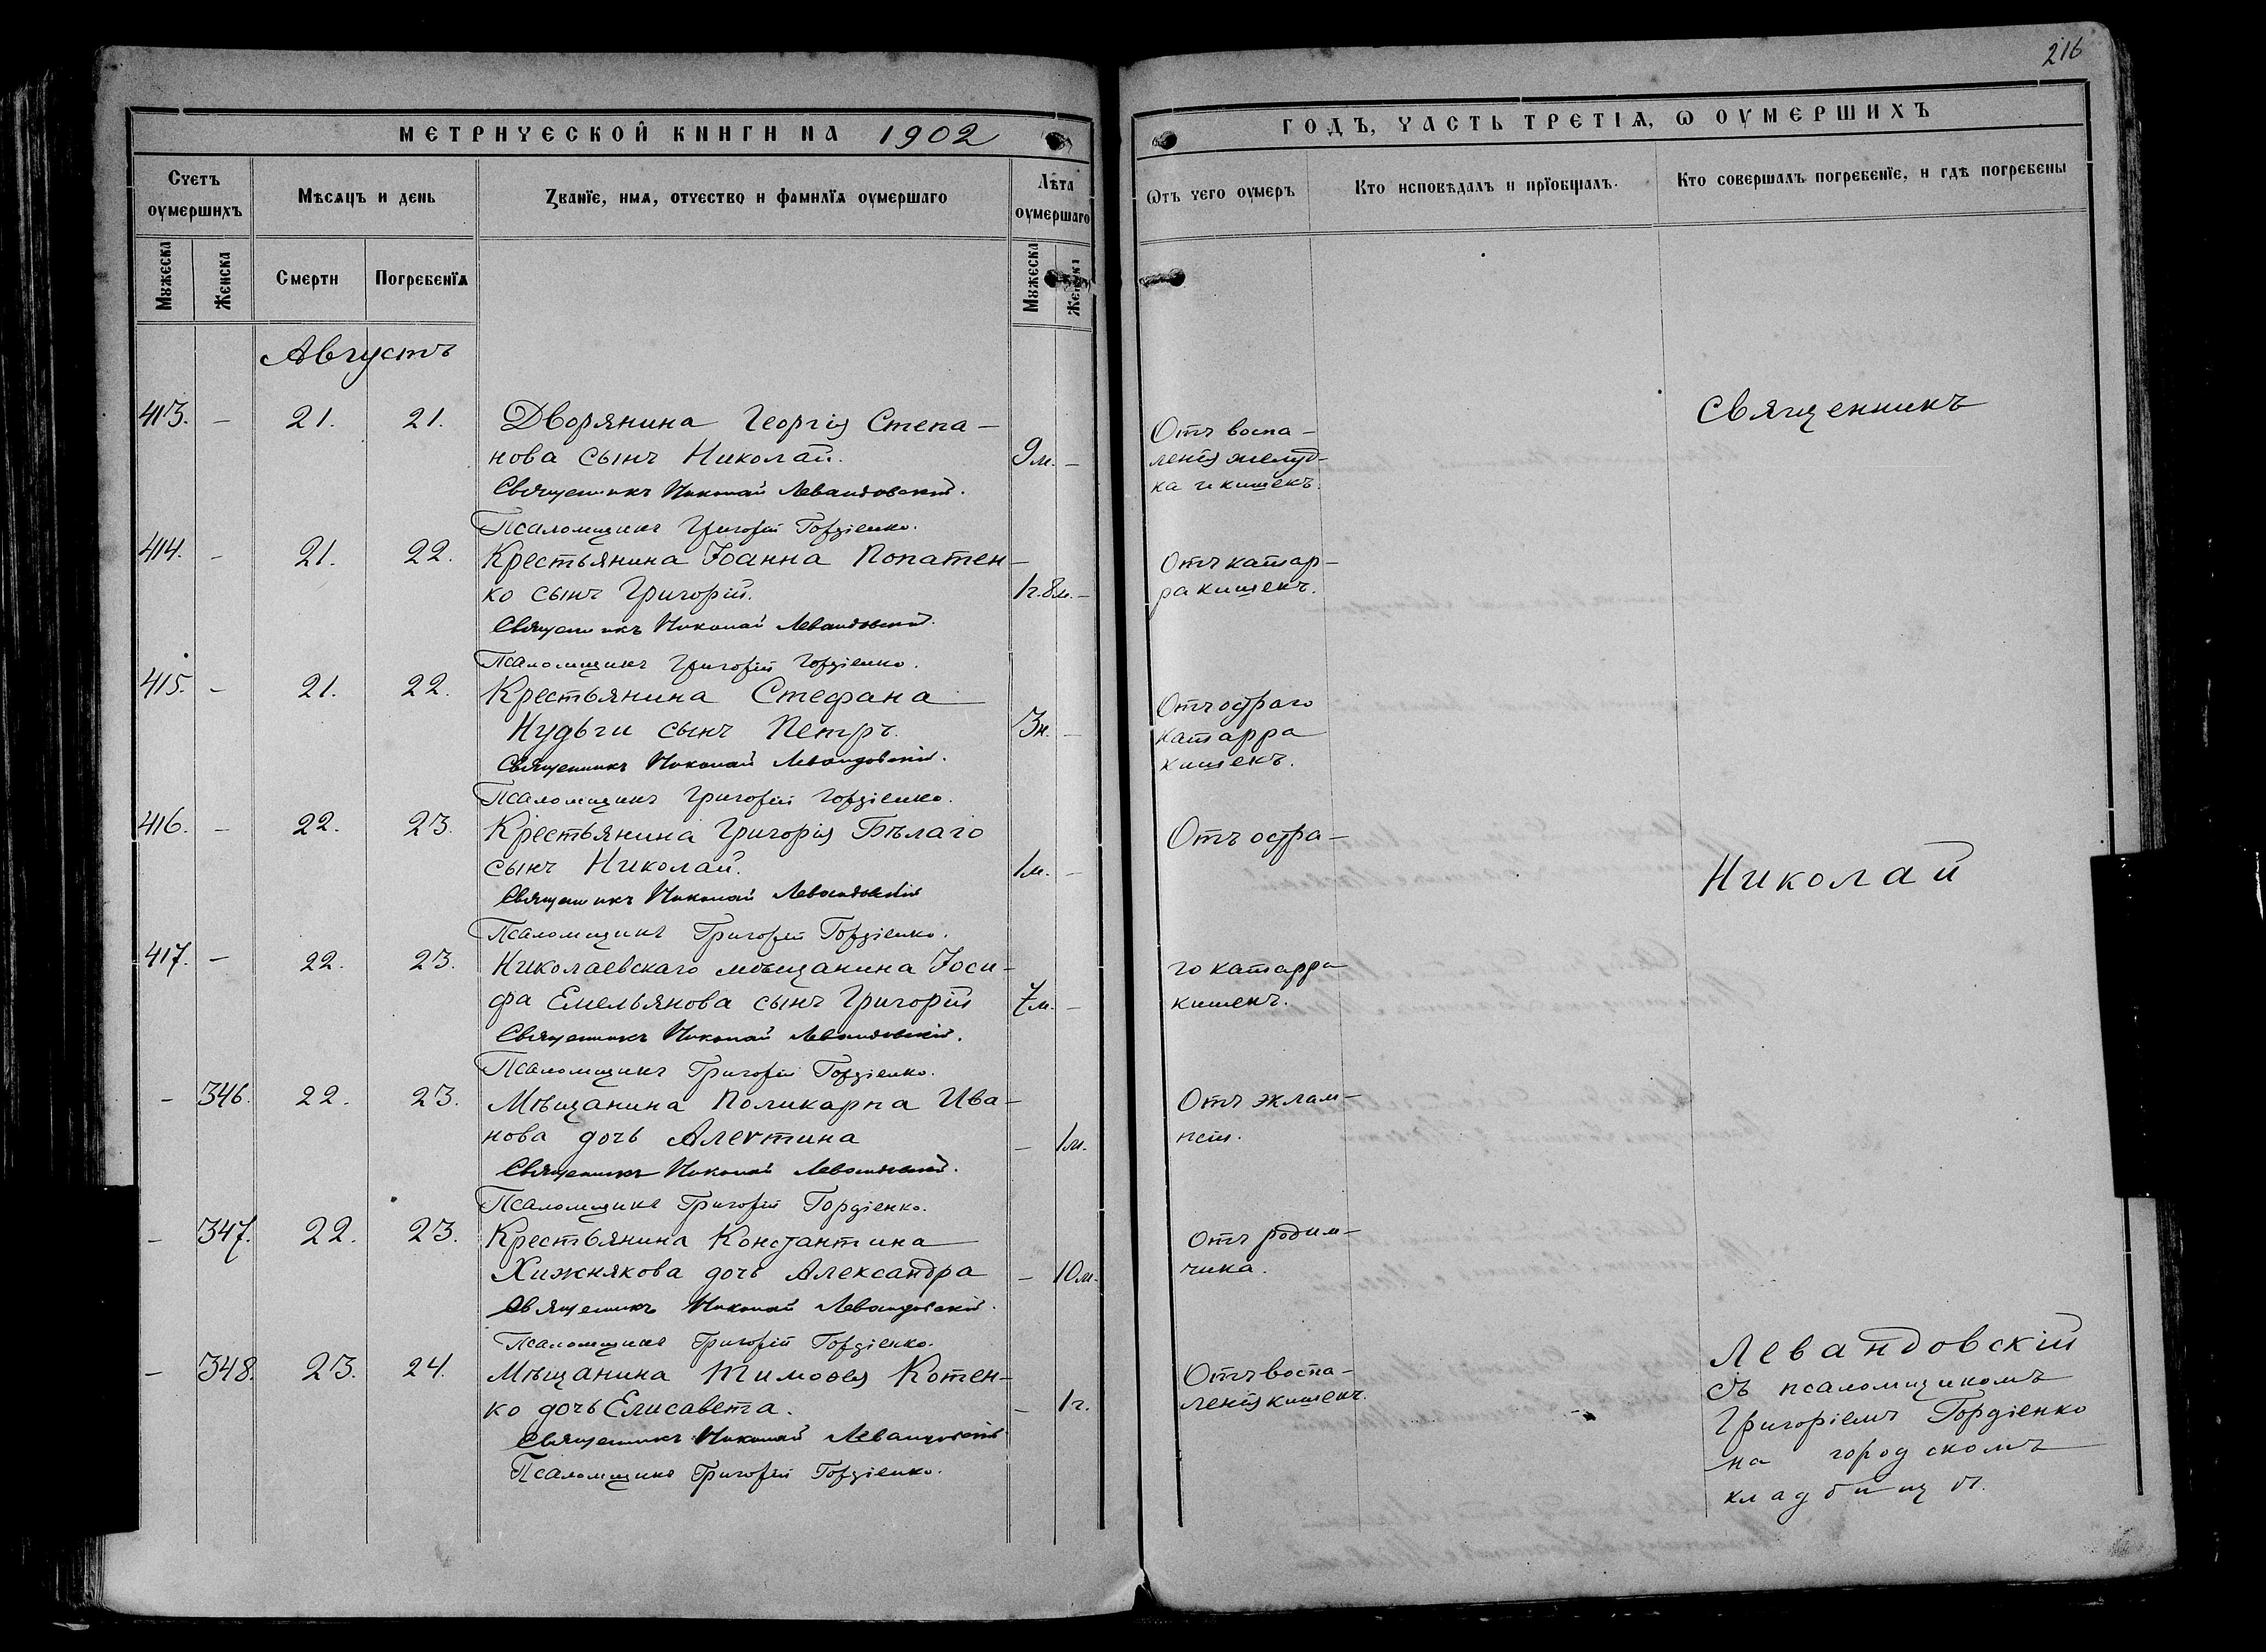 216
МЕТРИЧЕСКОЙ КНИГИ НА 1902
ГОДЪ, ЧАСТЬ ТРЕТІѦ, Ѡ ОУМЕРШИХЪ
Счетъ оумершихъ
Мѣсѧцъ и день
Званїе, имѧ, отчество и фамилїѧ оумершаго
Лѣта оумершаго
Ѿтъ чего оумеръ
Кто исповѣдалъ и прїобщалъ.
Кто совершалъ погребенїе, и гдѣ погребены
Мꙋжеска
Женска
Смерти
Погребенїѧ
Мꙋжеска
Женска
Августъ
413. - 21. 21. Дворянина Георгія Степа-
нова сынъ Николай. 9м. -
Священникъ Николай Левандовскій.
Псаломщикъ Григорій Гордіенко.
Отъ воспа-
ленія желуд-
ка и кишекъ.
414. - 21. 22. Крестьянина Іоанна Попатен-
ко сынъ Григорій. 1г.8м. -
Священникъ Николай Левандовскій.
Псаломщикъ Григорій Гордіенко.
Отъ катар-
ра кишекъ.
415. - 21. 22. Крестьянина Стефана
Нудьги сынъ Петръ. 3н. -
Священникъ Николай Левандовскій.
Псаломщикъ Григорій Гордіенко.
Отъ остраго
катарра
кишекъ.
416. - 22. 23. Крестьянина Григорія Бѣлаго
сынъ Николай. 1м. -
Священникъ Николай Левандовскій
Псаломщикъ Григорій Гордіенко.
Отъ остра-
417. - 22. 23. Николаевскаго мѣщанина Іоси-
фа Емельянова сынъ Григорій 7м. -
Священникъ Николай Левандовскій.
Псаломщикъ Григорій Гордіенко.
го катарра
кишекъ.
- 346. 22. 23. Мѣщанина Поликарпа Ива-
нова дочь Алевтина - 1м.
Священникъ Николай Левандовскій.
Псаломщикъ Григорій Гордіенко.
Отъ эклам-
псіи.
- 347. 22. 23. Крестьянина Константина
Хижнякова дочь Александра - 10м.
Священникъ Николай Левандовскій.
Псаломщикъ Григорій Гордіенко.
Отъ родим-
чика.
- 348. 23. 24. Мѣщанина Тимоѳея Котен-
ко дочь Елисавета. - 1г.
Священникъ Николай Левандовскій
Псаломщикъ Григорій Гордіенко.
Отъ воспа-
ленія кишекъ.
Священникъ
Николай
Левандовскій
съ псаломщикомъ
Григоріемъ Гордіенко
на городскомъ
кладбищѣ.